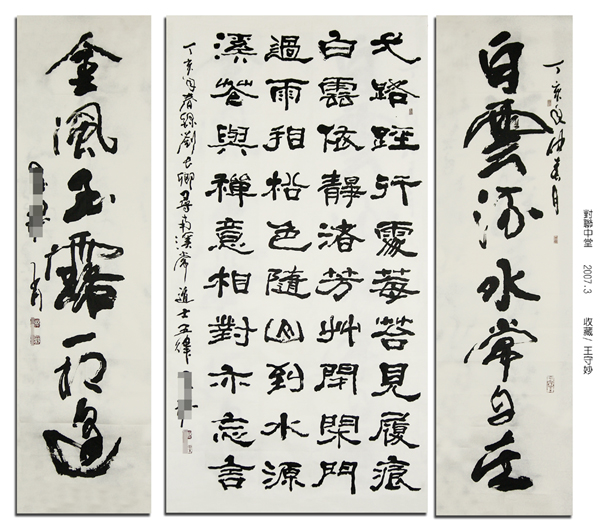 丁亥年仲春月
白雲流水常自在
弌路經行處莓苔見履痕
白雲依靜渚芳艸閉閑門
過雨相松色隨山到水源
溪花與禪意相對亦忘言
丁亥年春錄劉長卿尋南溪常道士五律
金風玉露一相逢
對聯中堂 2007.3 收藏/王守妙